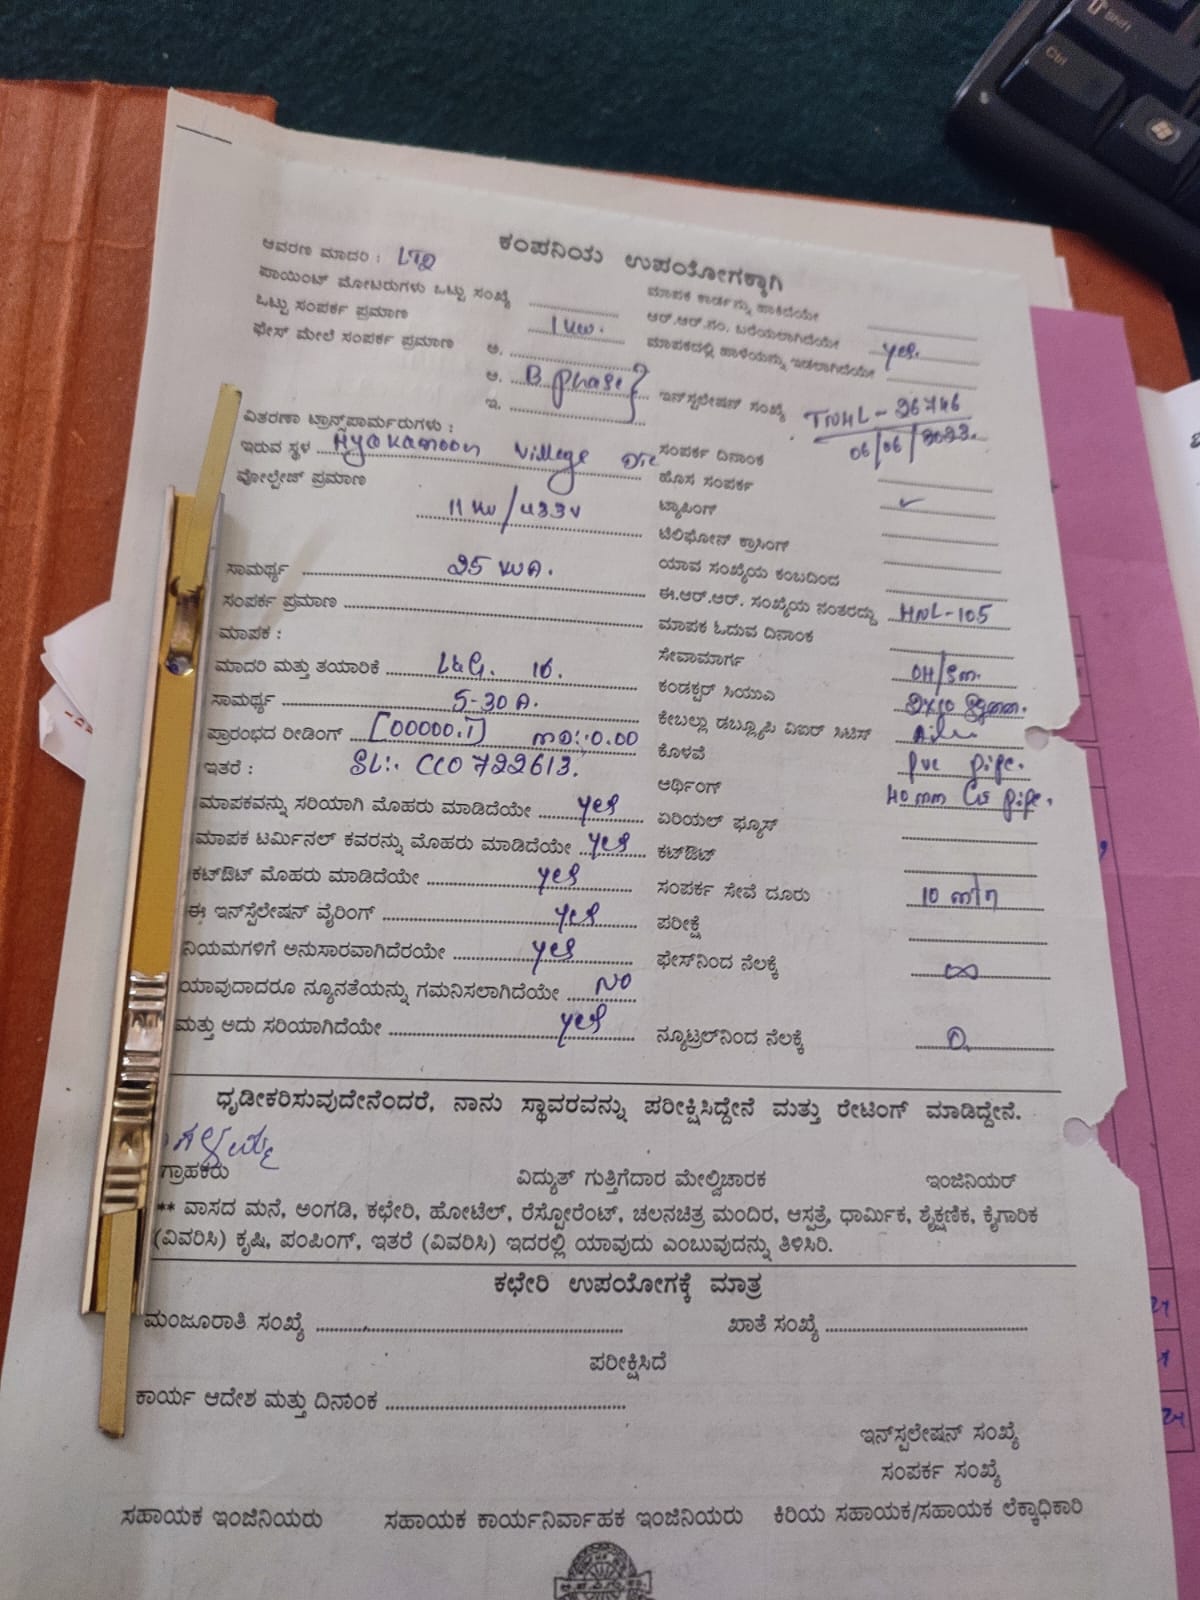 ಕಂಪನಿಯ ಉಪಯೋಗಕ್ಕಾಗಿ
ಆವರಣ ಮಾದರಿ :
ಪಾಯಿಂಟ್ ಮೋಟರುಗಳು ಒಟ್ಟು ಸಂಖ್ಯೆ
ಒಟ್ಟು ಸಂಪರ್ಕ ಪ್ರಮಾಣ 1 KW.
ಫೇಸ್ ಮೇಲೆ ಸಂಪರ್ಕ ಪ್ರಮಾಣ ಅ.
ಆ. B phase
ಇ.
ವಿತರಣಾ ಟ್ರಾನ್ಸ್‌ಪಾರ್ಮರುಗಳು :
ಇರುವ ಸ್ಥಳ Village
ವೋಲ್ಟೇಜ್ ಪ್ರಮಾಣ
11 KV/433V
ಸಾಮರ್ಥ್ಯ 25 KVA.
ಸಂಪರ್ಕ ಪ್ರಮಾಣ
ಮಾಪಕ :
ಮಾದರಿ ಮತ್ತು ತಯಾರಿಕೆ L&G.
ಸಾಮರ್ಥ್ಯ 5-30A.
ಪ್ರಾರಂಭದ ರೀಡಿಂಗ್ [00000.1] MD:.0.00
ಇತರೆ : SL:. CCO 722613.
ಮಾಪಕವನ್ನು ಸರಿಯಾಗಿ ಮೊಹರು ಮಾಡಿದೆಯೇ yes
ಮಾಪಕ ಟರ್ಮಿನಲ್ ಕವರನ್ನು ಮೊಹರು ಮಾಡಿದೆಯೇ yes
ಕಟ್‌ಔಟ್ ಮೊಹರು ಮಾಡಿದೆಯೇ yes
ಈ ಇನ್‌ಸ್ಪೆಲೇಷನ್ ವೈರಿಂಗ್ yes
ನಿಯಮಗಳಿಗೆ ಅನುಸಾರವಾಗಿದೆರಯೇ yes
ಯಾವುದಾದರೂ ನ್ಯೂನತೆಯನ್ನು ಗಮನಿಸಲಾಗಿದೆಯೇ NO
ಮತ್ತು ಅದು ಸರಿಯಾಗಿದೆಯೇ yes
ಮಾಪಕ ಕಾರ್ಡನ್ನು ಹಾಕಿದೆಯೇ
ಆರ್.ಆರ್.ನಂ. ಬರೆಯಲಾಗಿದೆಯೇ yes.
ಮಾಪಕದಲ್ಲಿ ಹಾಳೆಯನ್ನು ಇಡಲಾಗಿದೆಯೇ
ಇನ್‌ಸ್ಪಲೇಷನ್ ಸಂಖ್ಯೆ TNHL-26746
ಸಂಪರ್ಕ ದಿನಾಂಕ 06/06/2023.
ಹೊಸ ಸಂಪರ್ಕ
ಟ್ಯಾಪಿಂಗ್ ✓
ಟೆಲಿಫೋನ್ ಕ್ರಾಸಿಂಗ್
ಯಾವ ಸಂಖ್ಯೆಯ ಕಂಬದಿಂದ
ಈ.ಆರ್.ಆರ್. ಸಂಖ್ಯೆಯ ನಂತರದ್ದು HNL-105
ಮಾಪಕ ಓದುವ ದಿನಾಂಕ
ಸೇವಾಮಾರ್ಗ
ಕಂಡಕ್ಟರ್ ಸಿಯುಎ
ಕೇಬಲ್ಲು ಡಬ್ಲ್ಯೂಪಿ ವಿಐರ್ ಸಿಟಿಸ್
ಕೊಳವೆ PVC pipe.
ಆರ್ಥಿಂಗ್ 40 mm pipe.
ಏರಿಯಲ್ ಫ್ಯೂಸ್
ಕಟ್‌ಔಟ್
ಸಂಪರ್ಕ ಸೇವೆ ದೂರು
ಪರೀಕ್ಷೆ
ಫೇಸ್‌ನಿಂದ ನೆಲಕ್ಕೆ ∞
ನ್ಯೂಟ್ರಲ್‌ನಿಂದ ನೆಲಕ್ಕೆ 0.
ಧೃಡೀಕರಿಸುವುದೇನೆಂದರೆ, ನಾನು ಸ್ಥಾವರವನ್ನು ಪರೀಕ್ಷಿಸಿದ್ದೇನೆ ಮತ್ತು ರೇಟಿಂಗ್ ಮಾಡಿದ್ದೇನೆ.
ಗ್ರಾಹಕರು ವಿದ್ಯುತ್ ಗುತ್ತಿಗೆದಾರ ಮೇಲ್ವಿಚಾರಕ ಇಂಜಿನಿಯರ್
** ವಾಸದ ಮನೆ, ಅಂಗಡಿ, ಕಛೇರಿ, ಹೋಟೆಲ್, ರೆಸ್ಟೋರೆಂಟ್, ಚಲನಚಿತ್ರ ಮಂದಿರ, ಆಸ್ಪತ್ರೆ, ಧಾರ್ಮಿಕ, ಶೈಕ್ಷಣಿಕ, ಕೈಗಾರಿಕ
(ವಿವರಿಸಿ) ಕೃಷಿ, ಪಂಪಿಂಗ್, ಇತರೆ (ವಿವರಿಸಿ) ಇದರಲ್ಲಿ ಯಾವುದು ಎಂಬುವುದನ್ನು ತಿಳಿಸಿರಿ.
ಕಛೇರಿ ಉಪಯೋಗಕ್ಕೆ ಮಾತ್ರ
ಮಂಜೂರಾತಿ ಸಂಖ್ಯೆ ಖಾತೆ ಸಂಖ್ಯೆ
ಪರೀಕ್ಷಿಸಿದೆ
ಕಾರ್ಯ ಆದೇಶ ಮತ್ತು ದಿನಾಂಕ
ಇನ್‌ಸ್ಪಲೇಷನ್ ಸಂಖ್ಯೆ
ಸಂಪರ್ಕ ಸಂಖ್ಯೆ
ಸಹಾಯಕ ಇಂಜಿನಿಯರು ಸಹಾಯಕ ಕಾರ್ಯನಿರ್ವಾಹಕ ಇಂಜಿನಿಯರು ಕಿರಿಯ ಸಹಾಯಕ/ಸಹಾಯಕ ಲೆಕ್ಕಾಧಿಕಾರಿ
Shift
Ctrl